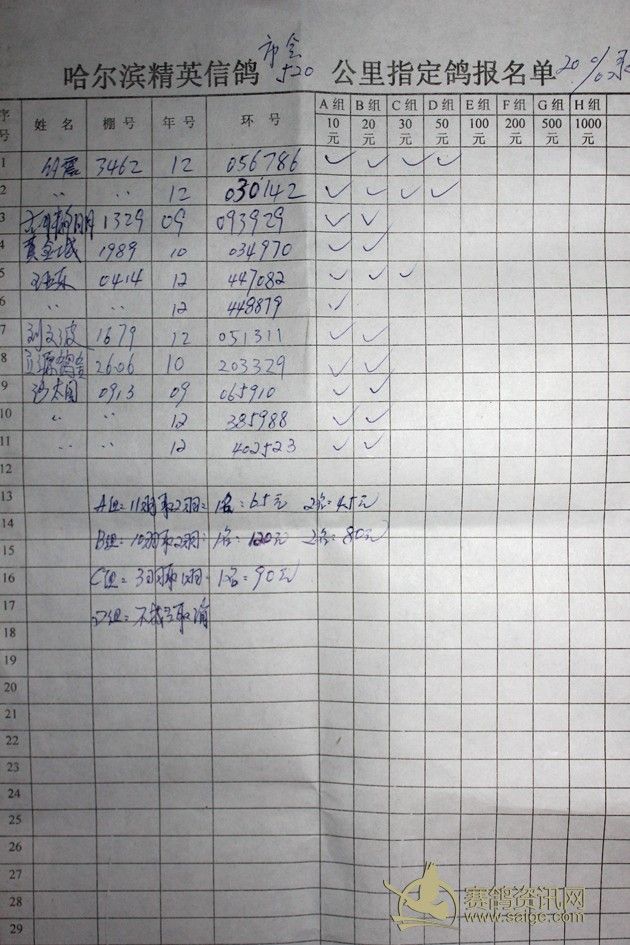 市会
哈尔滨精英信鸽 520 公里指定鸽报名单
序号 姓名 棚号 年号 环号 A组 10元 B组 20元 C组 30元 D组 50元 E组 100元 F组 200元 G组 500元 H组 1000元
1 3462 12 056786 ✓ ✓ ✓ ✓
2 〃 〃 12 030142 ✓ ✓ ✓ ✓
3 1329 09 093929 ✓ ✓
4 黄金城 1989 10 034970 ✓ ✓
5 0414 12 447082 ✓ ✓ ✓
6 〃 〃 12 448879 ✓
7 刘文波 1679 12 051311 ✓ ✓
8 2606 10 203329 ✓ ✓
9 0913 09 065910 ✓ ✓
10 〃 〃 12 385988 ✓ ✓
11 〃 〃 12 402523 ✓ ✓
12
13
A组: 11羽取2羽: 1名: 65元 2名: 45元
14
B组: 10羽取2羽: 1名: 120元 2名: 80元
15
16
C组: 3羽取1羽: 1名: 90元
17
D组: 不成立取消
18
19
20
21
22
23
24
25
26
27
28
29
赛鸽资讯网
www.saige.com